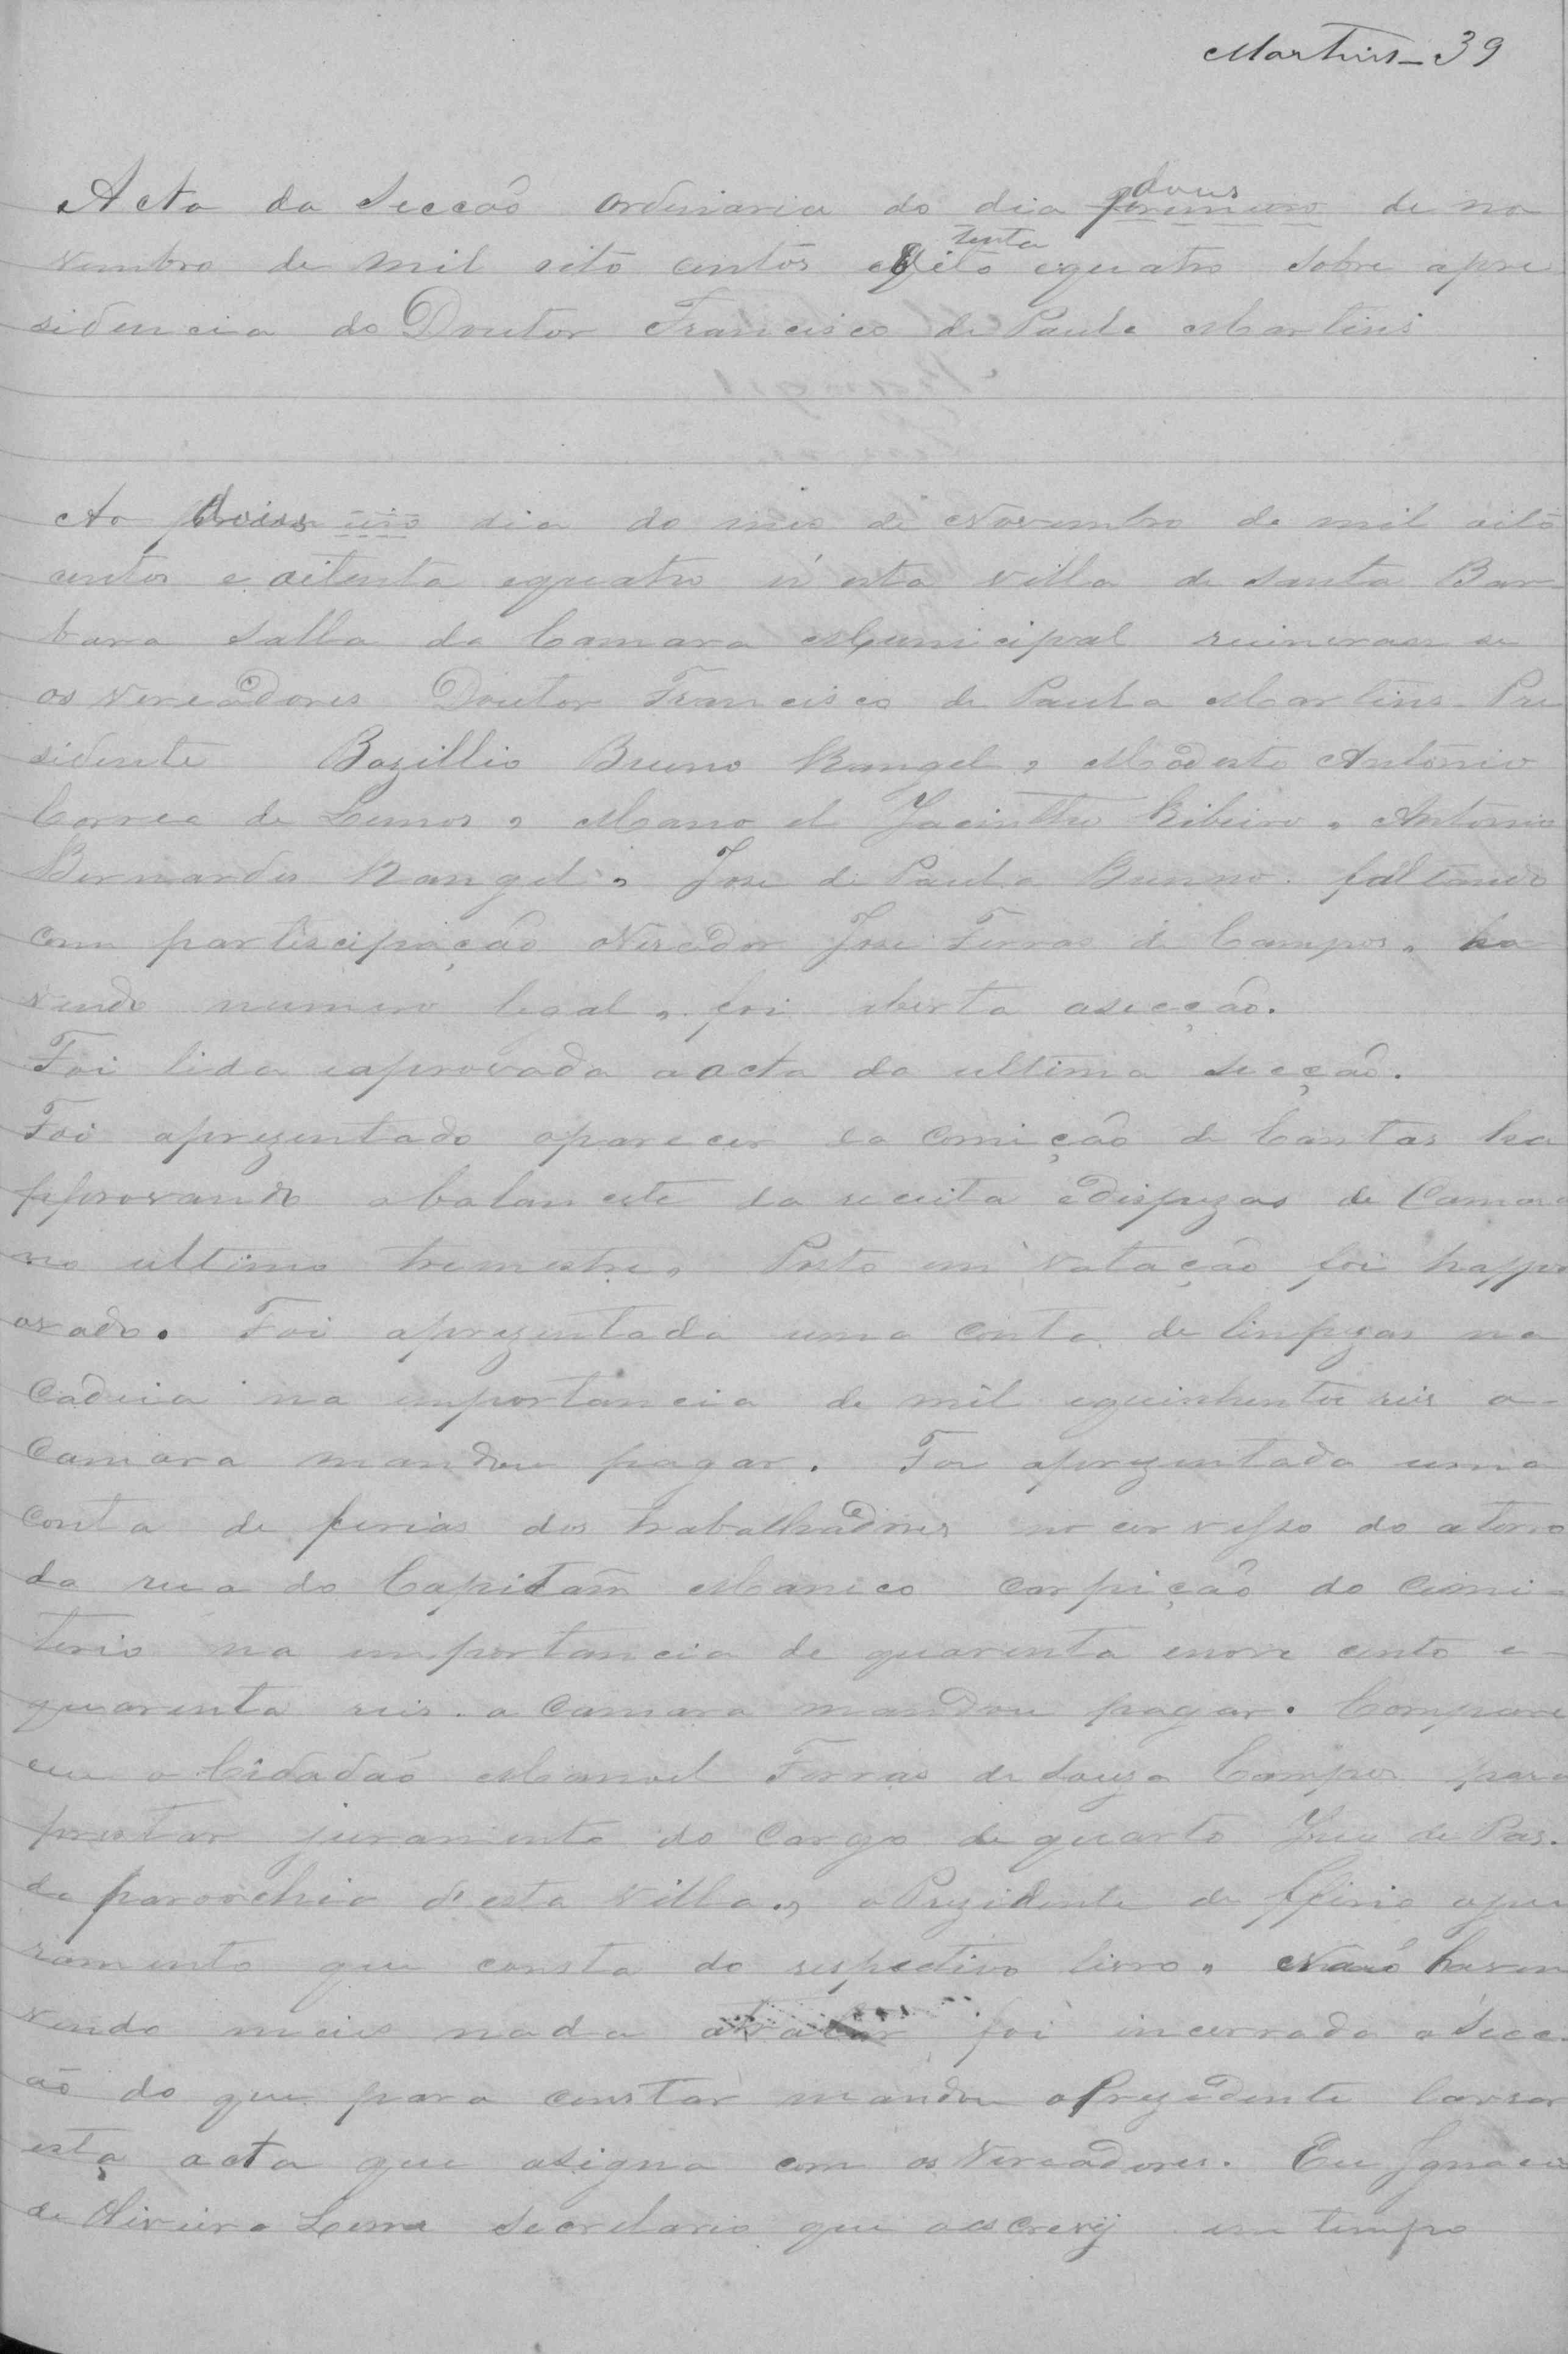 Martins - 39
Acta da Secção ordinaria do dia primeiro dous de no
vembro de mil oito centos e oito tenta equatro sobre apre
sidencia do Doutor Francisco de Paula Martins
Ao dois dia do mes de Novembro de mil oito
centos e oitenta equatro n'esta villa de Santa Bar
bara Salla da Camara Municipal reunirão se
os Vereadores Doutor Francisco de Paula Martins Pre
sidente Bazillio Bueno Rangel, Modesto Antonio
Correa de Lemos, Mano el Jacintho Ribeiro, Antonio
Bernardes Rangel, Jose de Paula Bueno. faltando
com partiscipação oVereador Jose Ferras de Campos, ha
vendo numero legal, foi aberta asecção.
Foi lida eaprovada aacta da ultima secção.
Foi aprezentado oparecer da Comição de Contas ha
pprovando obalancete da receita edispezas da Camara
no ultimo tremestre, Posto em votação foi happr
ovado. Foi aprezentada uma Conta de limpezas na
Cadeia na importancia de mil equinhentos reis a-
Camara mandou pagar. Foi aprezentada uma
Conta de ferias dos trabalhadores no do aterro
da rua do Capitam Maneco Carpição do Cimi-
terio na importancia de quarenta enove cento e-
quarenta reis. a Camara mandou pagar. Compare
ceu o Cidadão Manoel Ferras de Souza Campos para
prestar juramento do Cargo de quarto Juiz de Pas.
da parochia d'esta Villa., o Prezidente de ffirio oju
ramento que consta do respectivo livro, Não haven
vendo mais nada atratar foi incerrada a Secc-
ão do que para constar mandou oPrezidente lavrar
esta acta que asigna com os Vereadores. Eu Ignacio
de Oliveira Leme Secretario que aescrevy em tempo